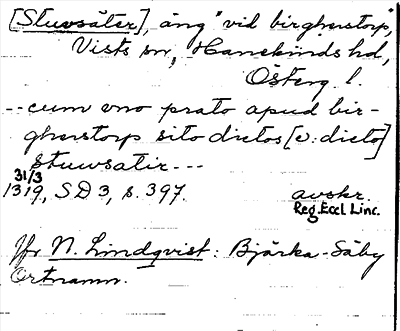 [Stuvsäter], äng "vid birgherstorp",
Vists sn, Hanekinds hd,
Österg. l.
-- cum vno prato apud bir-
gherstorp sito dictos [ɔ: dicto]
stuwsatir ---
31/3
1319, SD 3, s. 397. avskr.
Reg. Eccl. Linc.
Jfr N. Lindqvist: Bjärka-Säby
Ortnamn.